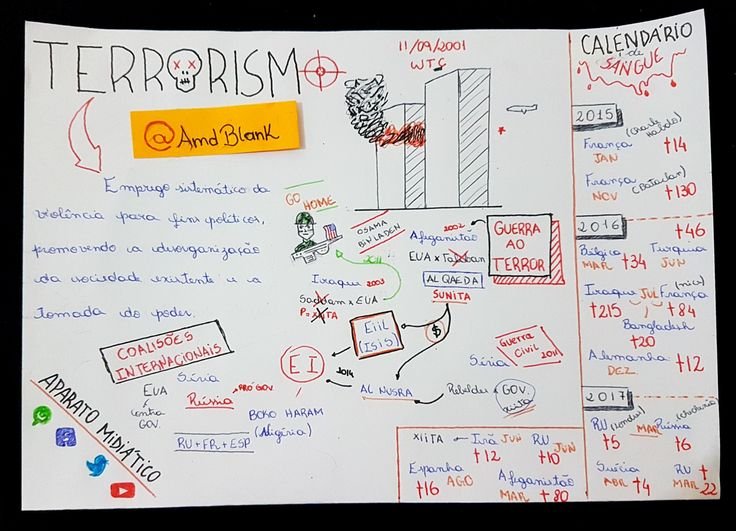 TERRORISMO
@AmdBlank
Emprego sistemático da
violência para fins políticos,
promovendo a desorganização
da sociedade existente e a
tomada do poder.
11/09/2001
WTC
GO HOME
OSAMA
BIN LADEN
2011
2002
Afeganistão
EUA x Taliban
AL QAEDA
SUNITA
GUERRA
AO
TERROR
Iraque 2003
Saddam x EUA
P= XIITA
COALISÕES
INTERNACIONAIS
Síria
EUA
contra
GOV.
Rússia
PRÓ GOV.
RU + FR + ESP
BOKO HARAM
(Nigéria)
EI
Eiil
(ISIS)
$
2014
AL NUSRA
Síria
Guerra
Civil 2011
Rebeldes
GOV.
xiita
APARATO MIDIÁTICO
CALENDÁRIO
de
SANGUE
2015
França (Charlie Hebdo)
JAN †14
França (Bataclan)
NOV †130
2016
†46
Bélgica Turquia
MAR †34 JUN
Iraque JUL França (Nice)
†215 †84
Bangladesh
†20
Alemanha †12
DEZ.
2017
RU (Londres) MAR Rússia
†5 †6
Suécia RU †
ABR †4 MAR 22
XIITA Irã JUN RU JUN
†12 †10
Espanha AGO Afeganistão
†16 MAR †80